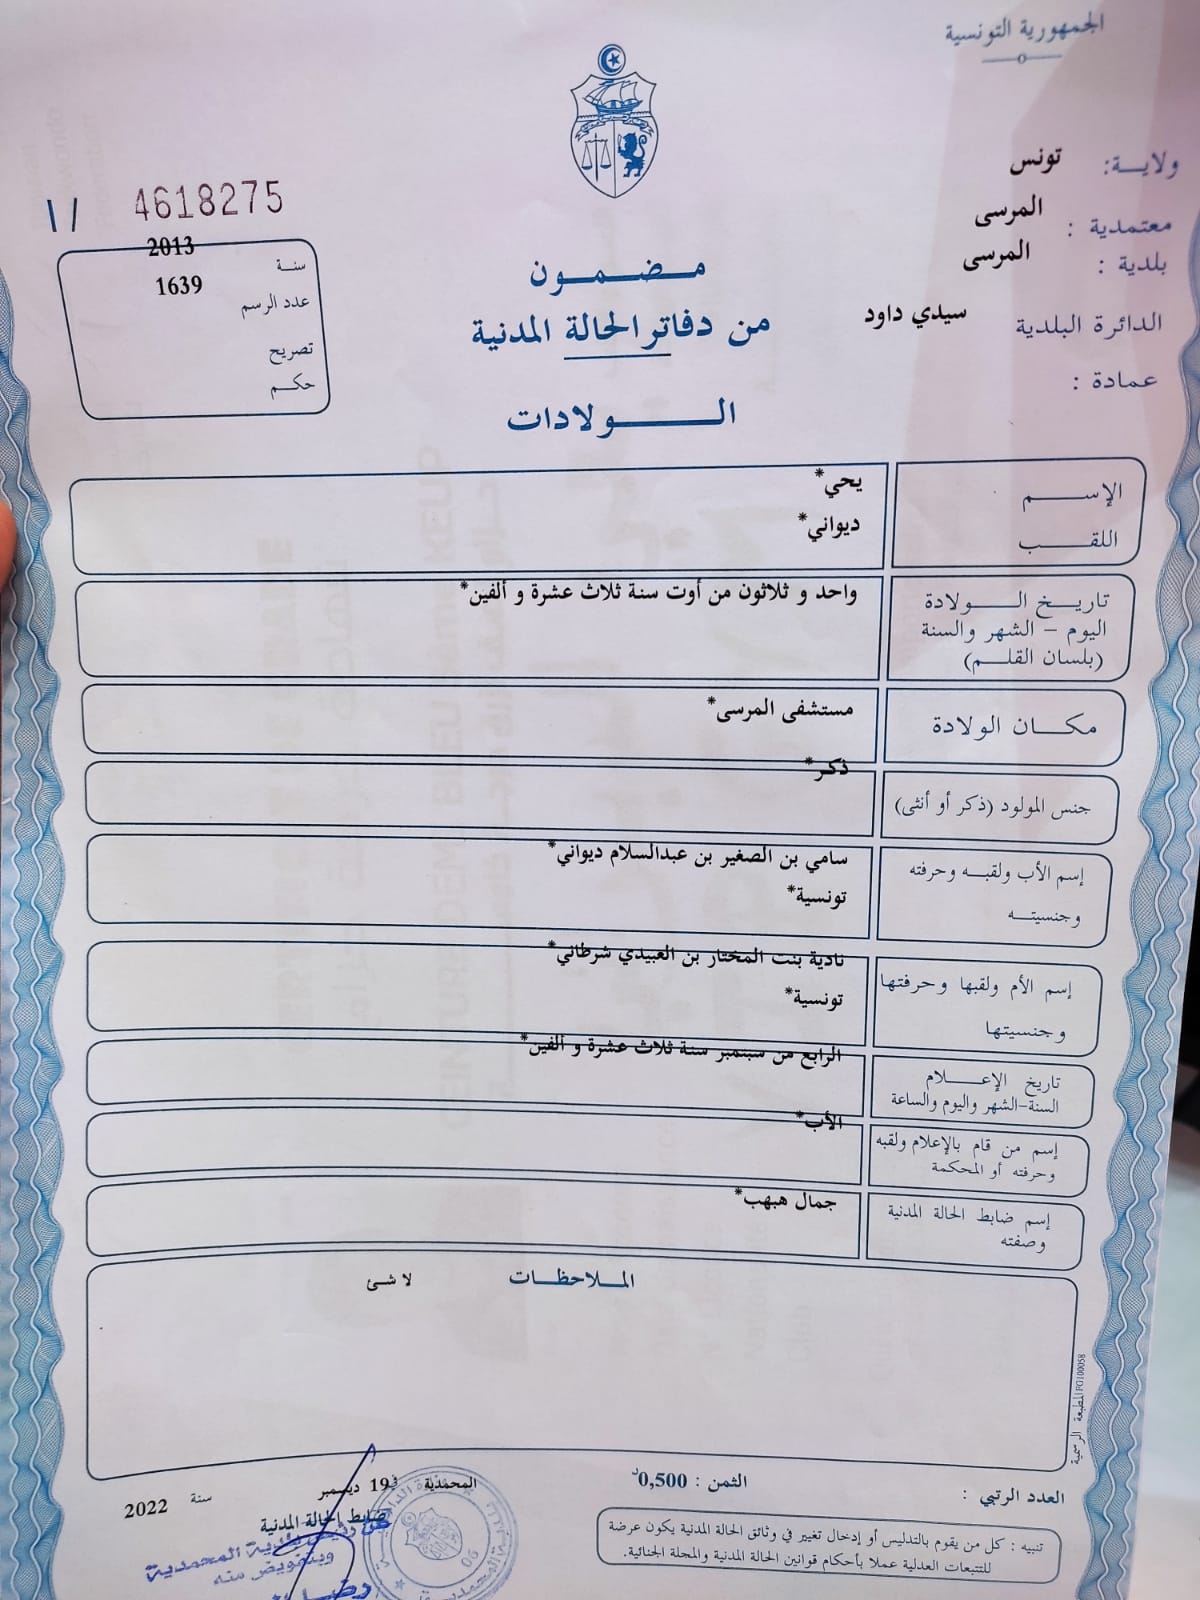 الجمهورية التونسية
ولايـــة: تونس
معتمدية : المرسى
بلدية : المرسى
الدائرة البلدية سيدي داود
عمادة :
١/ 4618275
سنـة 2013
عدد الرسم 1639
تصريح
حكــم
مـــضـــمـــون
من دفاتر الحالة المدنية
الـــــولادات
الإســـــم يحي*
اللقــــب ديواني*
تاريــخ الــــولادة واحد و ثلاثون من أوت سنة ثلاث عشرة و ألفين*
اليوم – الشهر والسنة
(بلسان القلــم)
مكـــان الولادة مستشفى المرسى*
جنس المولود (ذكر أو أنثى) ذكر*
إسم الأب ولقبـــه وحرفته سامي بن الصغير بن عبدالسلام ديواني*
وجنسيتـــه تونسية*
إسم الأم ولقبها وحرفتها نادية بنت المختار بن العبيدي شرطاني*
وجنسيتها تونسية*
تاريخ الإعـــــلام الرابع من سبتمبر سنة ثلاث عشرة و ألفين*
السنة-الشهر واليوم والساعة
إسم من قام بالإعلام ولقبه الأب*
وحرفته أو المحكمة
إسم ضابط الحالة المدنية جمال هبهب*
وصفته
الملاحظـــات لا شئ
المطبعة الرسمية PO100058
العدد الرتبي :
الثمن : 0,500د
المحمدية في 19 ديسمبر سنة 2022
ضابط الحالة المدنية
عن رئيس بلدية المحمدية
وبتفويض منه
تنبيه : كل من يقوم بالتدليس أو إدخال تغيير في وثائق الحالة المدنية يكون عرضة
للتتبعات العدلية عملا بأحكام قوانين الحالة المدنية والمجلة الجنائية.